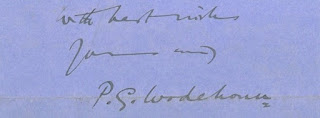 With best wishes
Yours ever
P. G. Wodehouse